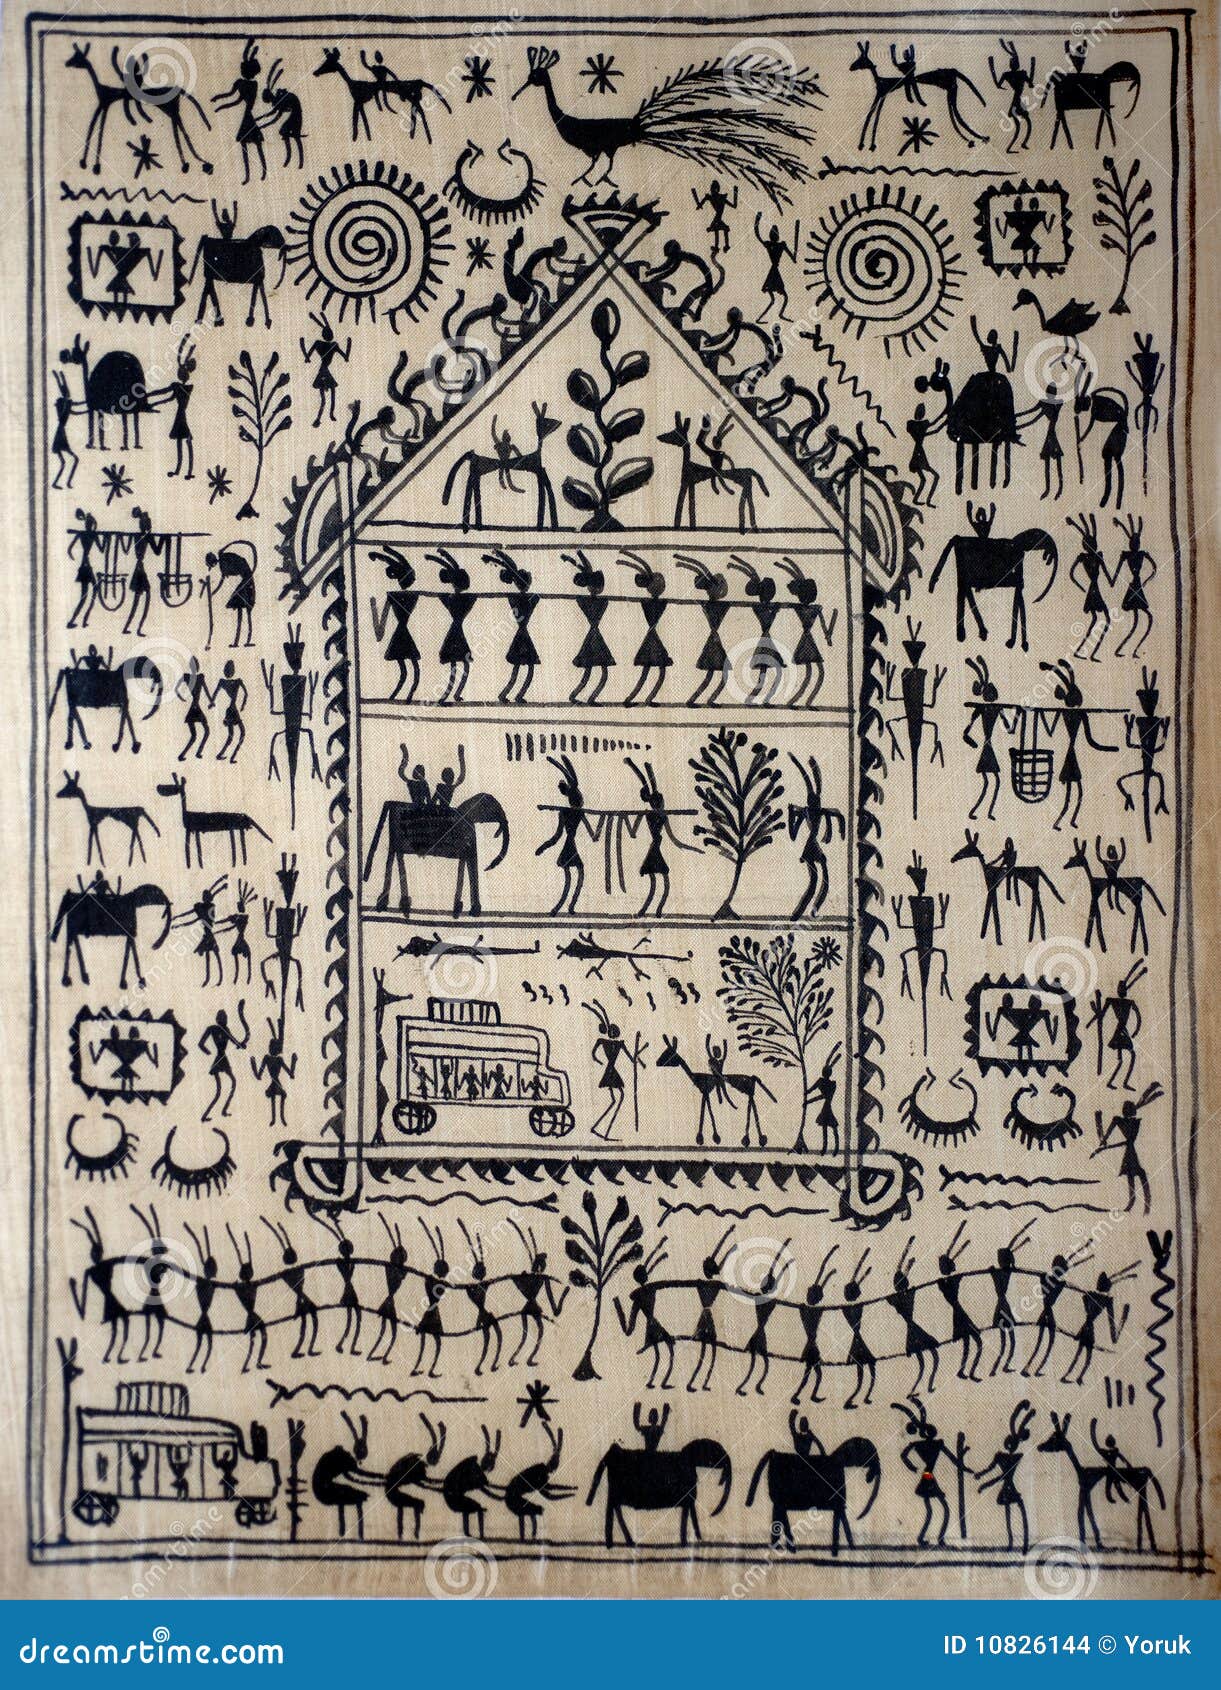 dreamstime.com
ID 10826144 © Yoruk